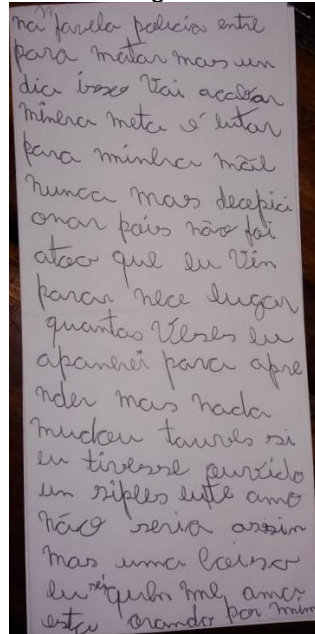 na favela policia entre
para matar mas un
dia isso vai acabar
minha meta é lutar
para minha mãe
nunca mas decepici
onar pois não foi
atoa que eu vin
parar nece lugar
quantas veses eu
apanhei para apre
nder mas nada
mudou tauves si
eu tivesse ouvido
un siples eute amo
não seria assin
mas uma coisa
eu sei quen me ama
esta orando por mim